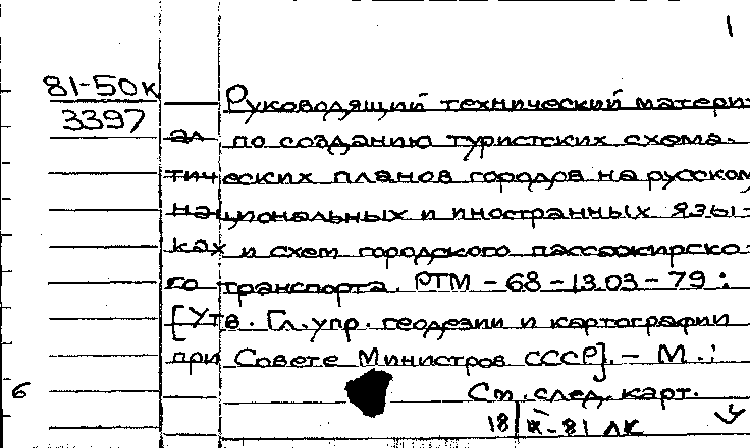 1
81-50к
3397
Руководящий технический матери-
ал по созданию туристских схема-
тических планов городов на русском
национальных и иностранных язы-
ках и схем городского пассажирско-
го транспорта. РТМ - 68 - 13.03 - 79 :
[Утв. Гл. упр. геодезии и картографии
при Совете Министров СССР]. - М. :
6
См. след. карт.
18 IX - 81 ЛК